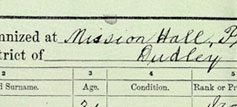 nnized at Mission Hall, P
trict of Dudley
2 3 4 5
d Surname. Age. Condition. Rank or Pr